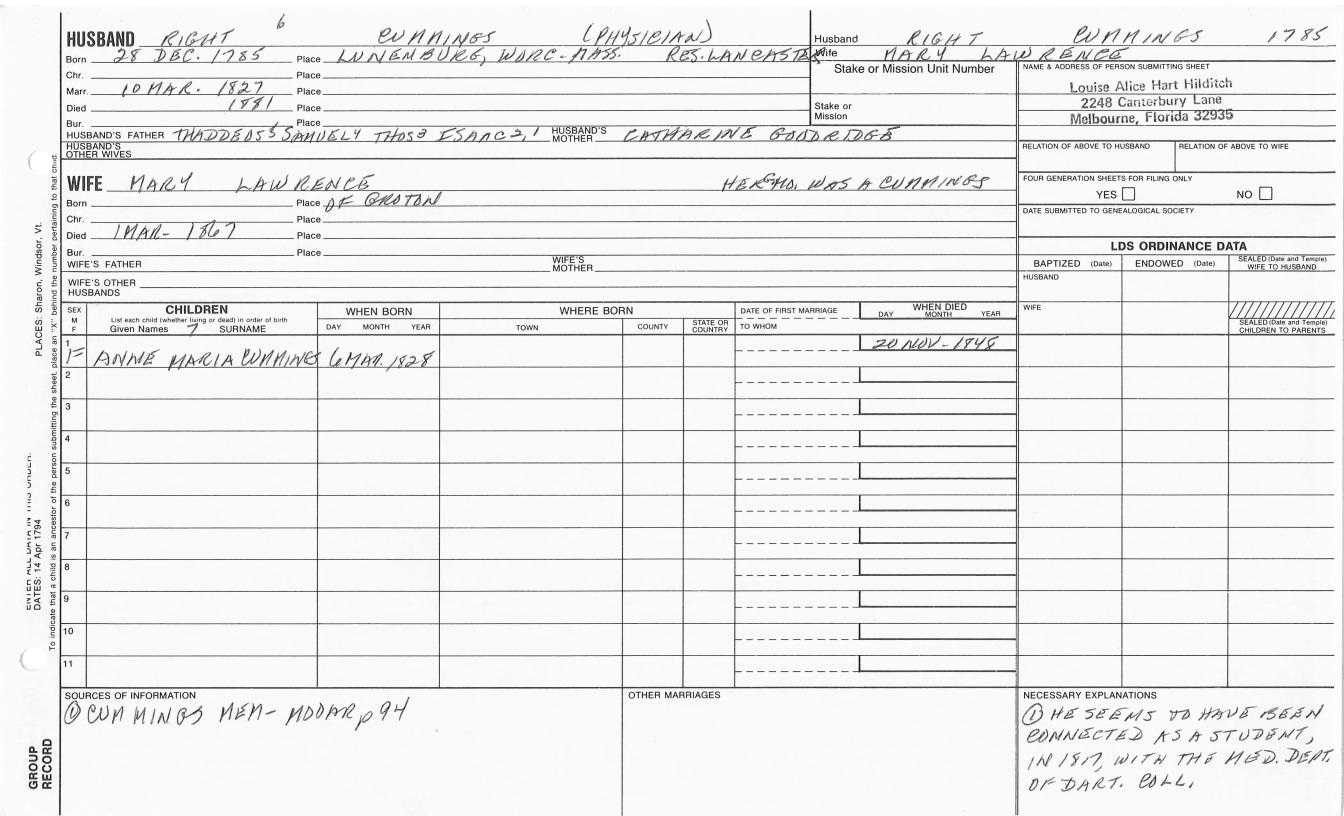 HUSBAND RIGHT 6 CUMMINGS (PHYSICIAN)
Born 28 DEC. 1785 Place LUNENBURG, WORC- MASS. RES. LANCASTER
Chr. Place
Marr. 10 MAR. 1827 Place
Died 1881 Place
Bur. Place
HUSBAND'S FATHER THADDEOS5 SAMUEL4 THOS3 ISAAC2,1 HUSBAND'S MOTHER CATHARINE GOODRIDGE
HUSBAND'S OTHER WIVES
Husband RIGHT CUMMINGS 1785
Wife MARY LAWRENCE
Stake or Mission Unit Number
Stake or Mission
NAME & ADDRESS OF PERSON SUBMITTING SHEET
Louise Alice Hart Hilditch
2248 Canterbury Lane
Melbourne, Florida 32935
RELATION OF ABOVE TO HUSBAND RELATION OF ABOVE TO WIFE
FOUR GENERATION SHEETS FOR FILING ONLY
YES NO
DATE SUBMITTED TO GENEALOGICAL SOCIETY
WIFE MARY LAWRENCE HER GMO. WAS A CUMMINGS
Born Place OF GROTON
Chr. Place
Died 1 MAR- 1867 Place
Bur. Place
WIFE'S FATHER WIFE'S MOTHER
WIFE'S OTHER HUSBANDS
LDS ORDINANCE DATA
BAPTIZED (Date) ENDOWED (Date) SEALED (Date and Temple) WIFE TO HUSBAND
HUSBAND
WIFE
SEALED (Date and Temple) CHILDREN TO PARENTS
SEX M F
CHILDREN
List each child (whether living or dead) in order of birth
Given Names 7 SURNAME
WHEN BORN
DAY MONTH YEAR
WHERE BORN
TOWN COUNTY STATE OR COUNTRY
DATE OF FIRST MARRIAGE
TO WHOM
WHEN DIED
DAY MONTH YEAR
1 F ANNE MARIA CUMMINGS 6 MAR. 1828 20 NOV - 1848
2
3
4
5
6
7
8
9
10
11
SOURCES OF INFORMATION
① CUMMINGS MEM- MOOAR p 94
OTHER MARRIAGES
NECESSARY EXPLANATIONS
① HE SEEMS TO HAVE BEEN
CONNECTED AS A STUDENT,
IN 1817, WITH THE MED. DEPT.
OF DART. COLL.
PLACES: Sharon, Windsor, Vt.
To indicate that a child is an ancestor of the person submitting the sheet, place an "X" behind the number pertaining to that child.
ENTER ALL DATA IN THIS ORDER:
DATES: 14 Apr 1794
GROUP RECORD